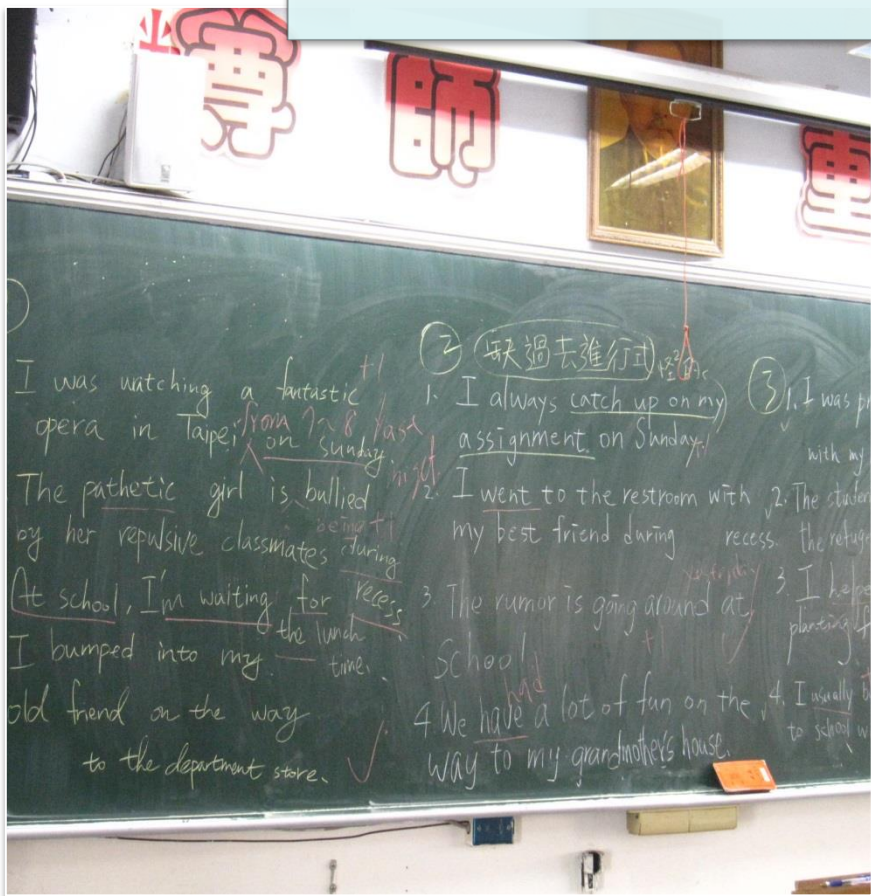 尊師重
I was watching a fantastic +1
opera in Taipei from 7~8 last
on sunday.
The pathetic girl is bullied
being +1
by her repulsive classmates during
recess
At school, I'm waiting for
the lunch
time.
I bumped into my
old friend on the way
to the department store.
② 缺過去進行式
1. I always catch up on my
assignment on Sunday.
2. I went to the restroom with
my best friend during recess.
3. The rumor is going around at
school
+
had
4. We have a lot of fun on the
way to my grandmother's house.
③ 1. I was pr
with my
2. The studen
the refuge
3. I helpe
planting f
4. I usually b
to school w